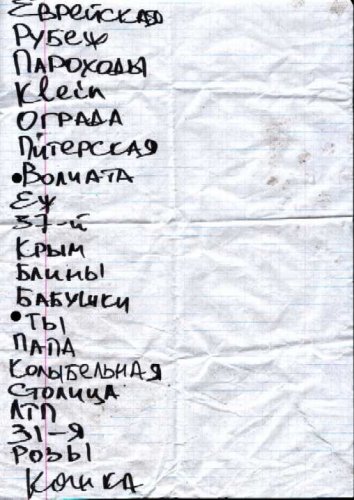 ЕВРЕЙСКАЯ
РУБЕЖ
ПАРОХОДЫ
Klein
ОГРАДА
ПИТЕРСКАЯ
•ВОЛЧАТА
ЕЖ
37-й
КРЫМ
БЛИНЫ
БАБУШКИ
•ТЫ
ПАПА
КОЛЫБЕЛЬНАЯ
СТОЛИЦА
ЛТП
31-Я
РОЗЫ
КОШКА